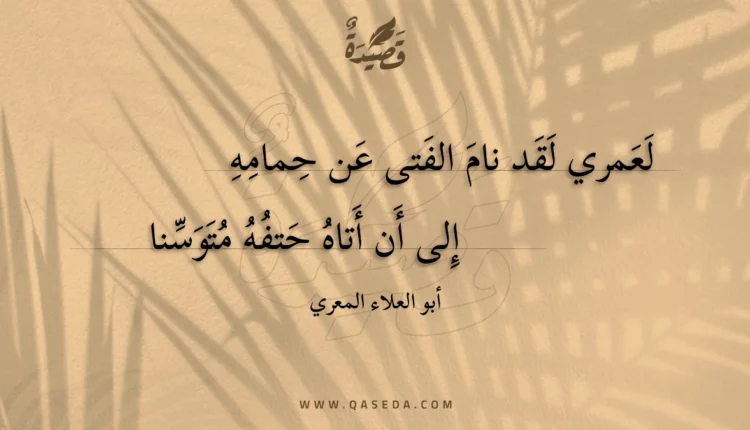 قَصِيْدَةٌ
لَعَمري لَقَد نامَ الفَتى عَن حِمامِهِ
إِلى أَن أَتاهُ حَتفُهُ مُتَوَسِّنا
أبو العلاء المعري
WWW.QASEDA.COM